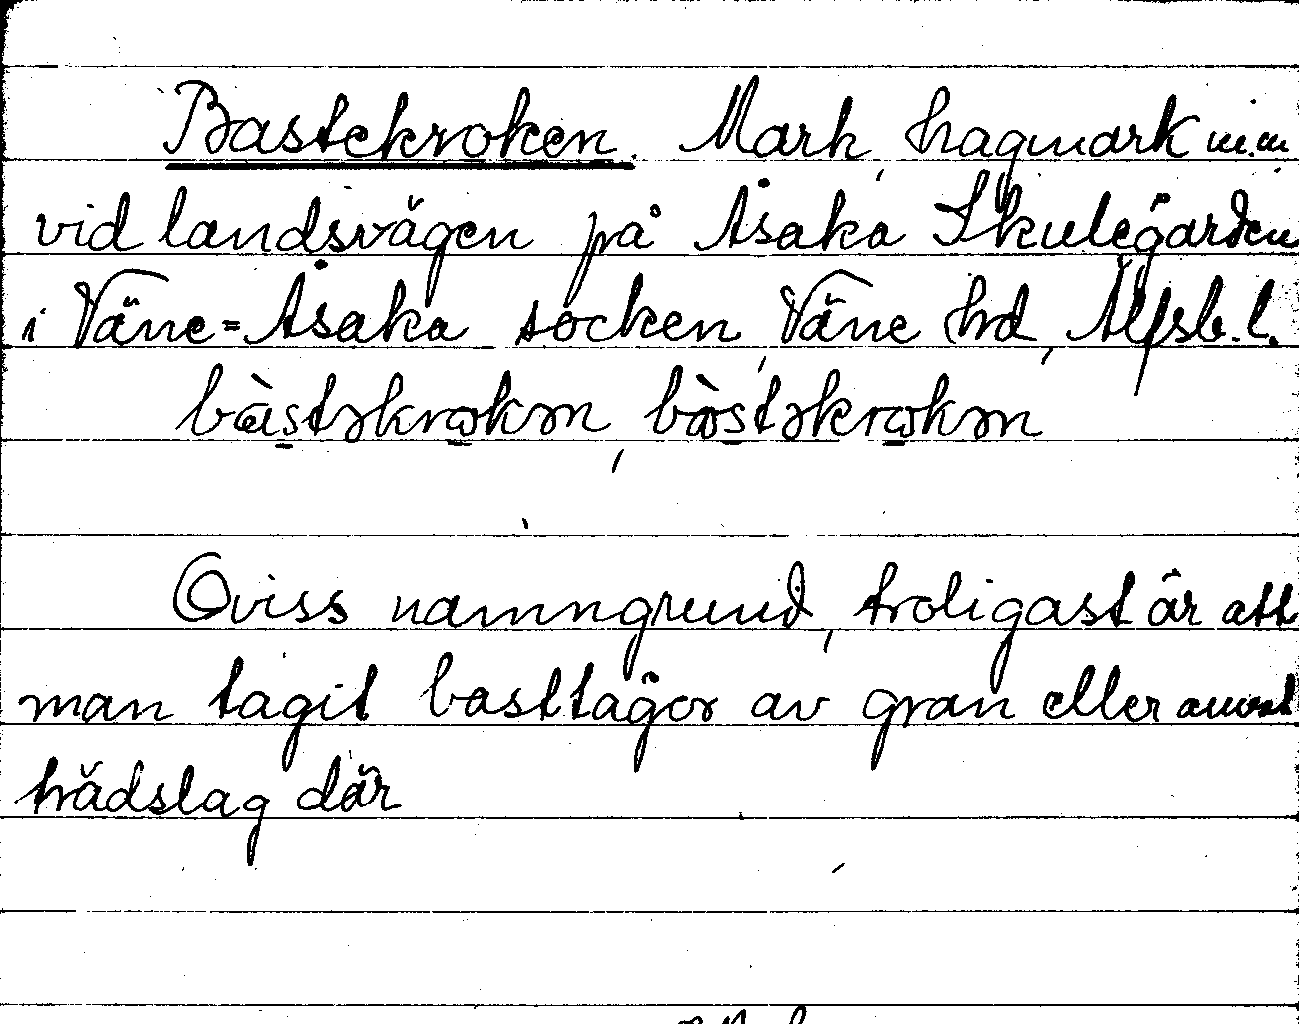 Bastekroken. Mark, hagmark m.m
vid landsvägen på Åsaka Skulegården
i Väne-Åsaka socken, Väne hd, Älfsb. l.
Oviss namngrund, troligast är att
man tagit basttågor av gran eller annat
trädslag där